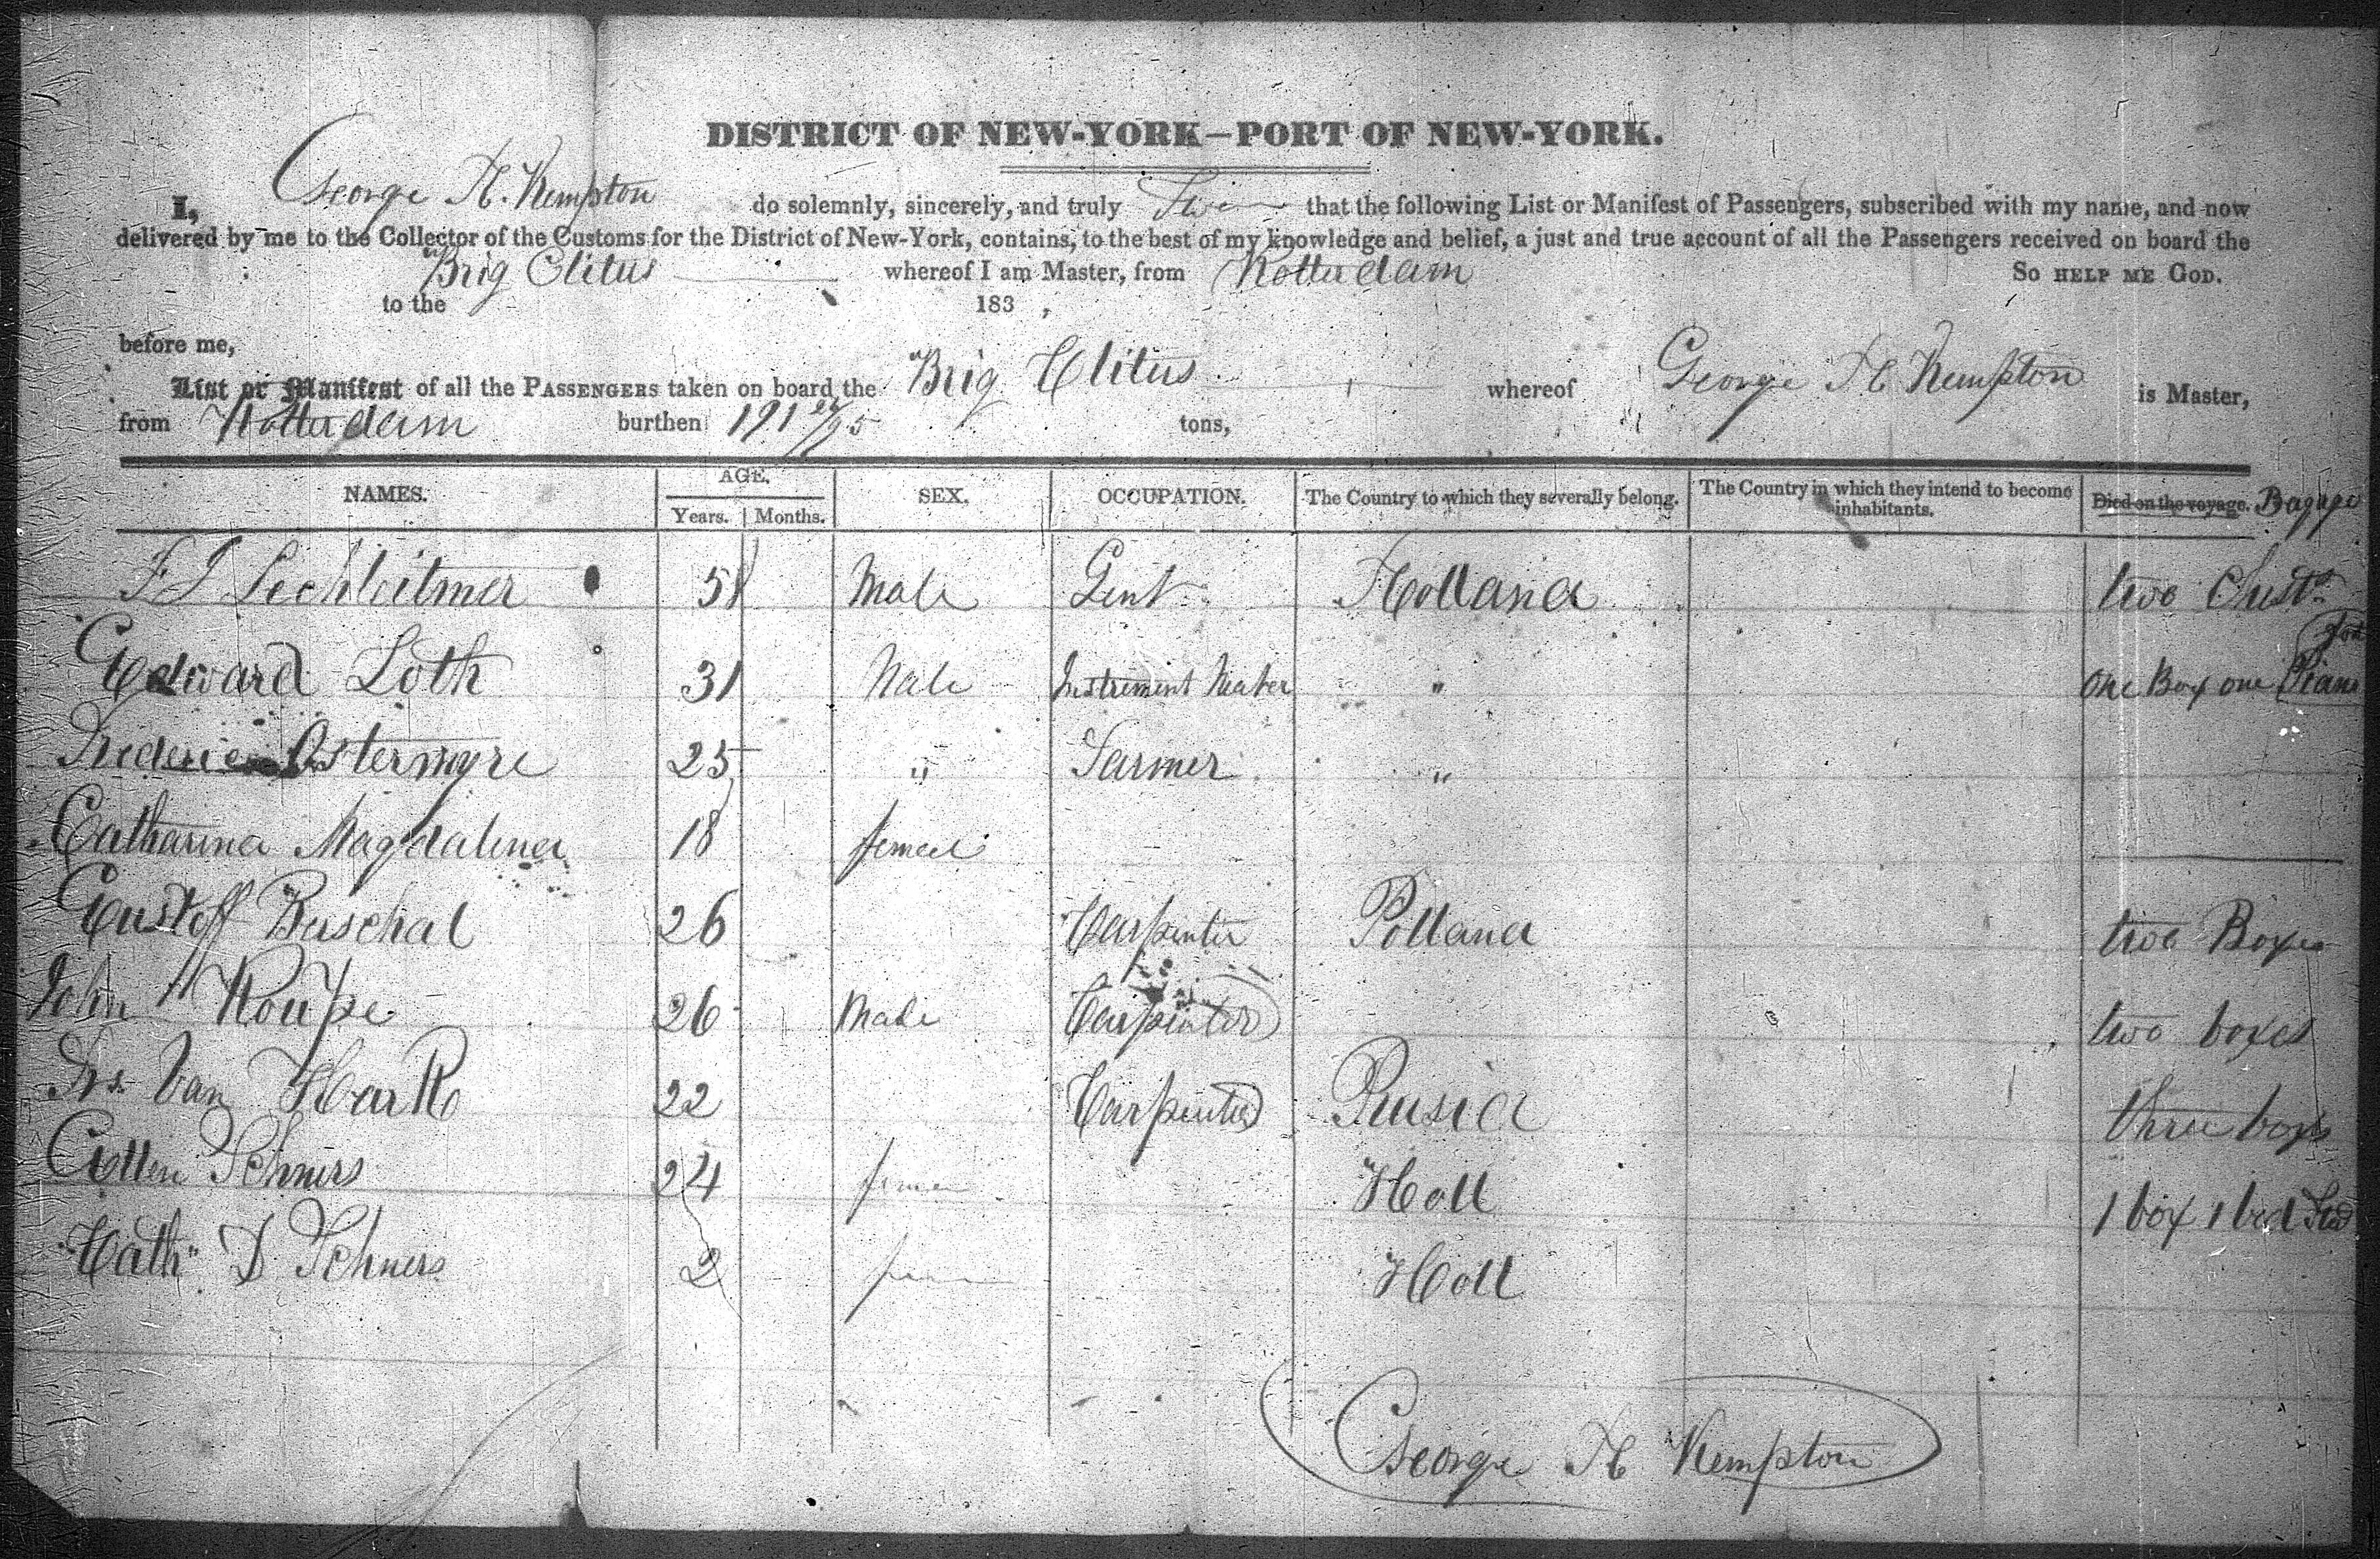 DISTRICT OF NEW-YORK—PORT OF NEW-YORK.
I, George H. Kempton do solemnly, sincerely, and truly that the following List or Manifest of Passengers, subscribed with my name, and now
delivered by me to the Collector of the Customs for the District of New-York, contains, to the best of my knowledge and belief, a just and true account of all the Passengers received on board the
Brig Clitus whereof I am Master, from Rotterdam So HELP ME GOD.
to the 183 ,
before me,
List or Manifest of all the PASSENGERS taken on board the Brig Clitus whereof George H Kempton is Master,
from Rotterdam burthen 191 /95 tons,
NAMES. AGE. Years. Months. SEX. OCCUPATION. The Country to which they severally belong. The Country in which they intend to become inhabitants. Died on the voyage. Bagage
F J 51 Male Gent Holland two Chests
Edward Loth 31 Male Instrement Maker " one Box one Piano
Frederic Ostermyre 25 " Farmer "
Catharina Magdalena 18 femeel
Gustoff Buschal 26 Carpenter Polland two Boxes
John H Roupe 26 Male Carpenter two boxes
Frs. Van Hark 22 Carpenter Prusia three boxs
Schners 24 Holl 1 box 1 bed
Cath" D Schners 2 Holl
George H Kempton